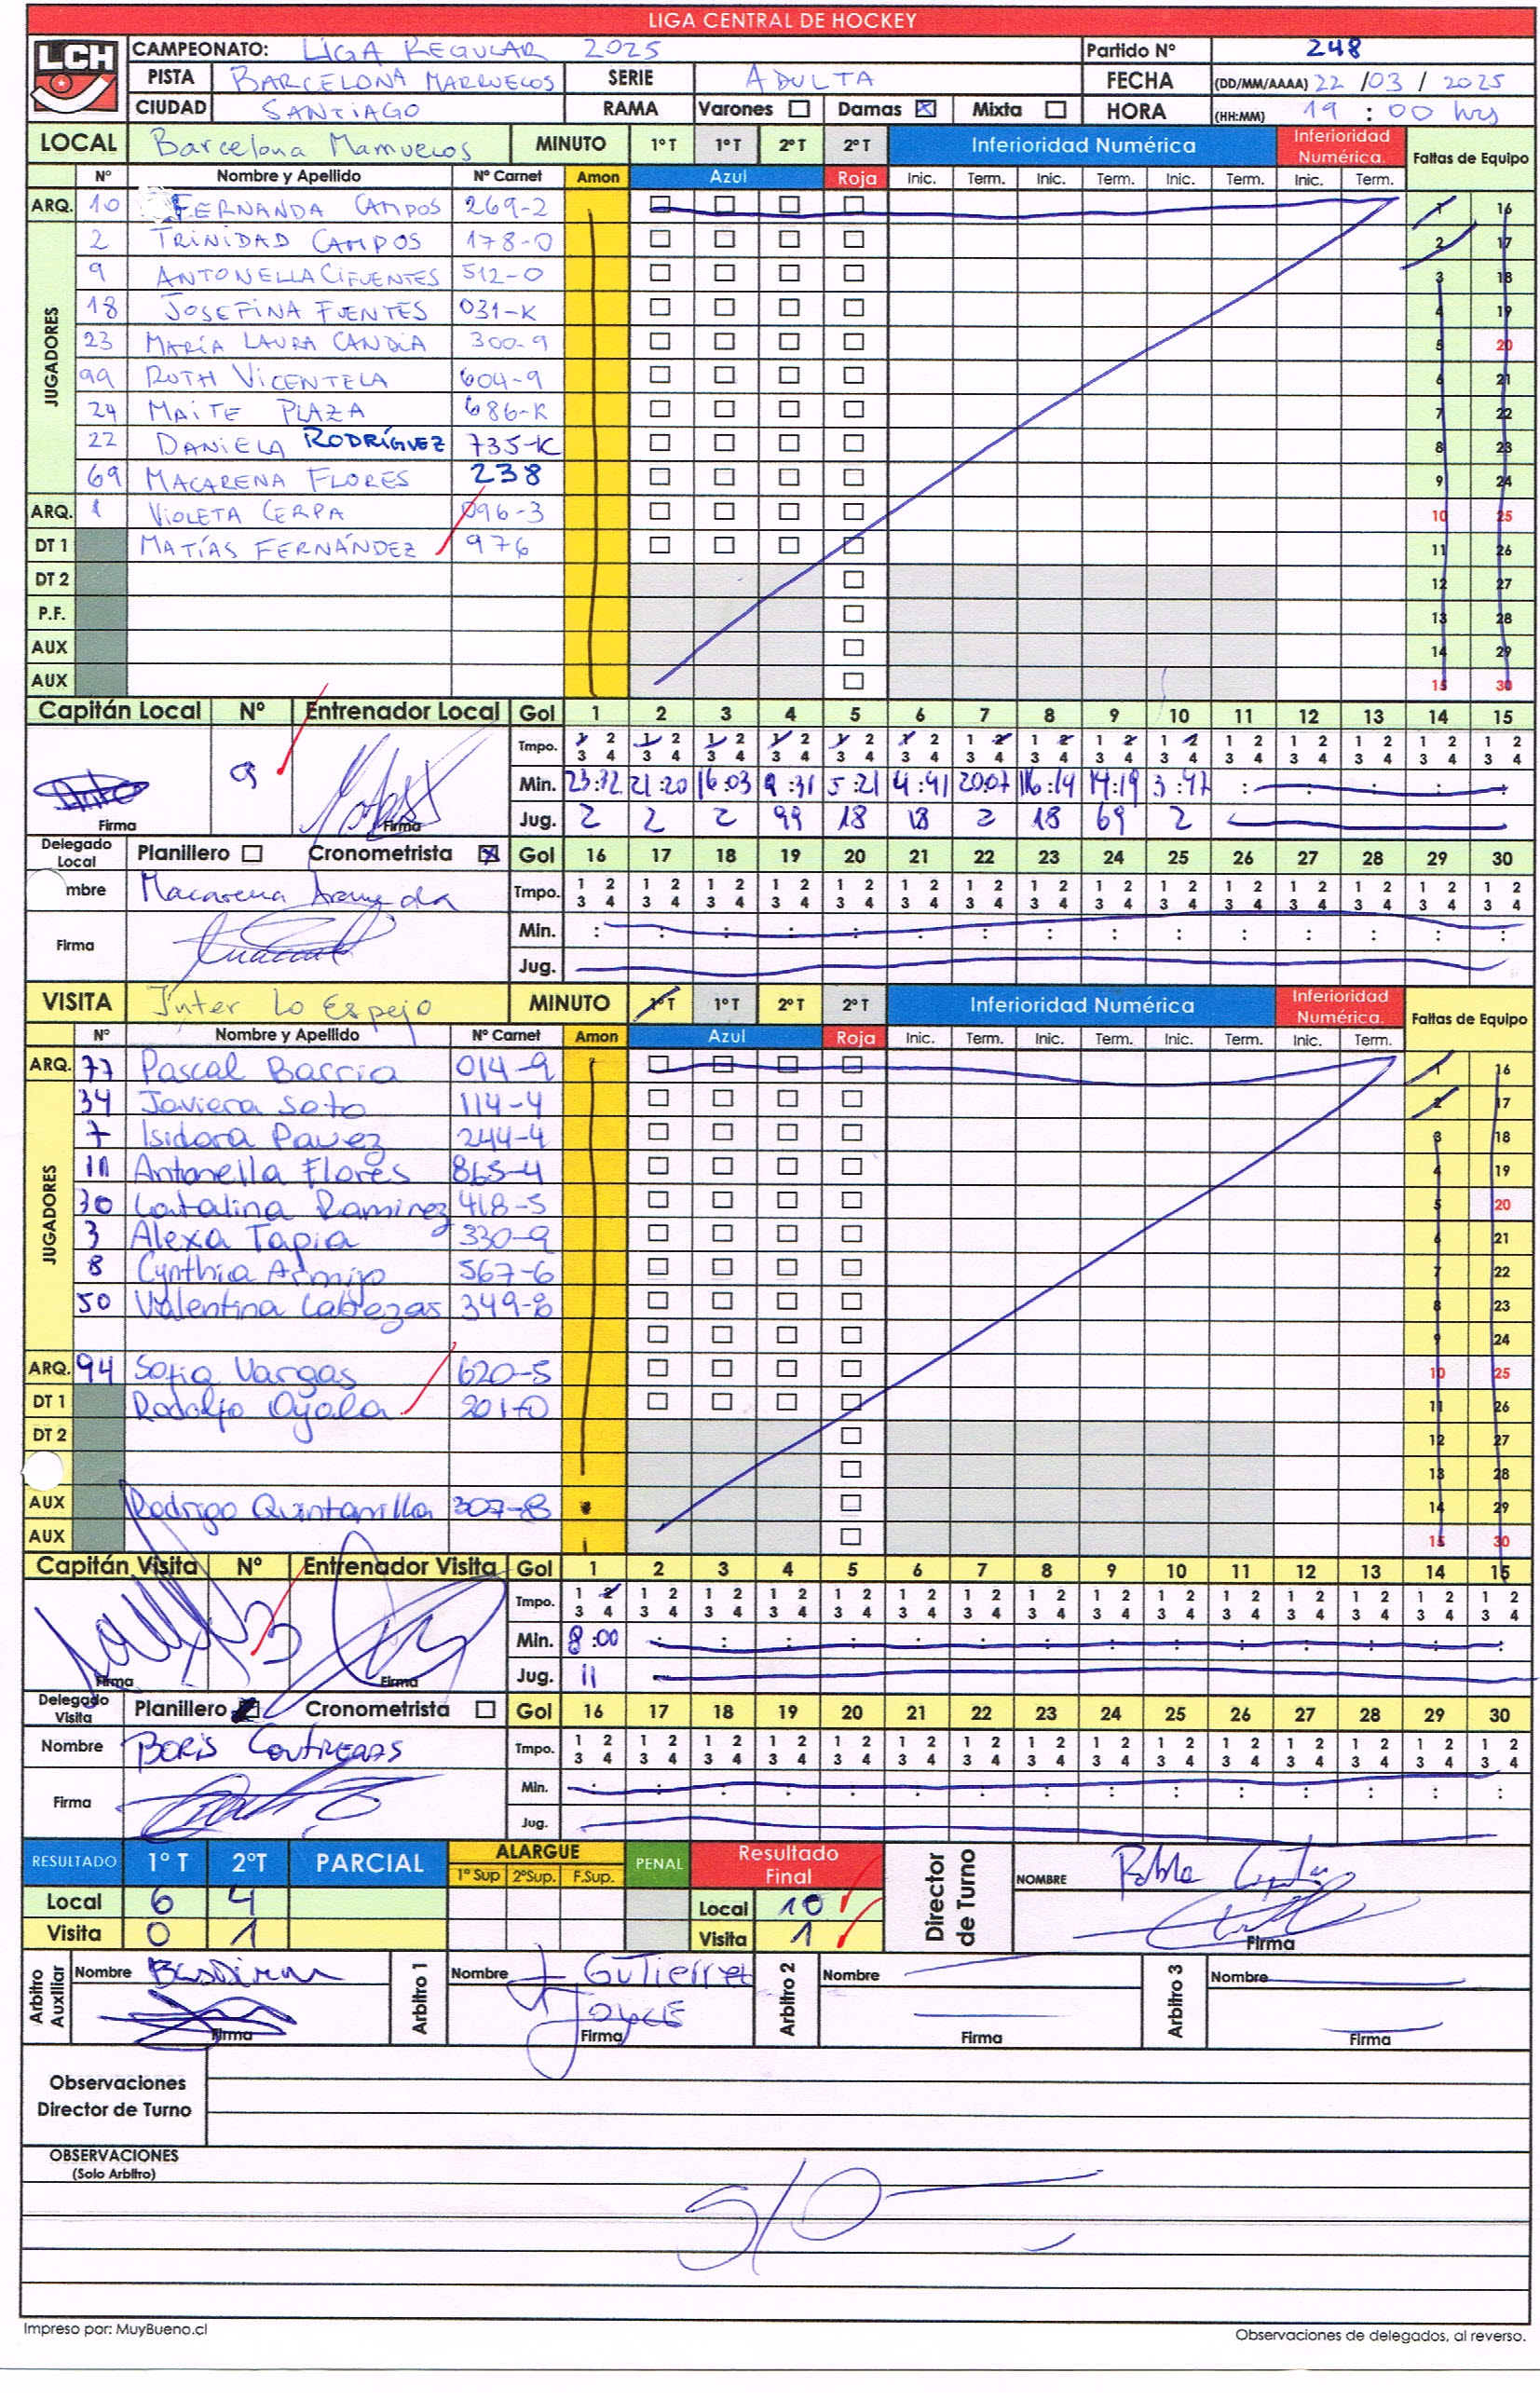 LIGA CENTRAL DE HOCKEY
LCH
CAMPEONATO: LIGA REGULAR 2025 Partido N° 248
PISTA BARCELONA MARRUECOS SERIE ADULTA FECHA (DD/MM/AAAA) 22 /03 / 2025
CIUDAD SANTIAGO RAMA Varones Damas Mixta HORA (HH:MM) 19 : 00 hrs
LOCAL Barcelona Marruecos MINUTO 1°T 1°T 2°T 2°T Inferioridad Numérica Inferioridad Numérica. Faltas de Equipo
N° Nombre y Apellido N° Carnet Amon Azul Roja Inic. Term. Inic. Term. Inic. Term. Inic. Term.
ARQ. 10 FERNANDA CAMPOS 269-2 1 16
JUGADORES
2 TRINIDAD CAMPOS 178-0 2 17
9 ANTONELLA CIFUENTES 512-0 3 18
18 JOSEFINA FUENTES 031-K 4 19
23 MARÍA LAURA CANDIA 300-9 5 20
99 RUTH VICENTELA 604-9 6 21
24 MAITE PLAZA 686-K 7 22
22 DANIELA RODRÍGUEZ 735-K 8 23
69 MACARENA FLORES 238 9 24
ARQ. 1 VIOLETA CERPA 096-3 10 25
DT 1 MATÍAS FERNÁNDEZ 976 11 26
DT 2 12 27
P.F. 13 28
AUX 14 29
AUX 15 30
Capitán Local N° Entrenador Local Gol 1 2 3 4 5 6 7 8 9 10 11 12 13 14 15
Tmpo. 1 2 1 2 1 2 1 2 1 2 1 2 1 2 1 2 1 2 1 2 1 2 1 2 1 2 1 2 1 2
3 4 3 4 3 4 3 4 3 4 3 4 3 4 3 4 3 4 3 4 3 4 3 4 3 4 3 4 3 4
9 Min. 23:32 21:20 16:03 9:31 5:21 4:41 20:07 16:14 14:19 3:47 : : : : :
Firma Firma Jug. 2 2 2 99 18 18 2 18 69 2
Delegado Local Planillero Cronometrista Gol 16 17 18 19 20 21 22 23 24 25 26 27 28 29 30
mbre Macarena Tmpo. 1 2 1 2 1 2 1 2 1 2 1 2 1 2 1 2 1 2 1 2 1 2 1 2 1 2 1 2 1 2
3 4 3 4 3 4 3 4 3 4 3 4 3 4 3 4 3 4 3 4 3 4 3 4 3 4 3 4 3 4
Firma Min. : : : : : : : : : : : : : : :
Jug.
VISITA Inter Lo Espejo MINUTO 1°T 1°T 2°T 2°T Inferioridad Numérica Inferioridad Numérica. Faltas de Equipo
N° Nombre y Apellido N° Carnet Amon Azul Roja Inic. Term. Inic. Term. Inic. Term. Inic. Term.
ARQ. 77 Pascal Barria 014-9 1 16
JUGADORES
34 Javiera Soto 114-4 2 17
7 Isidora Pavez 244-4 3 18
11 Antonella Flores 865-4 4 19
30 Catalina Ramirez 418-5 5 20
3 Alexa Tapia 330-9 6 21
8 Cynthia Armijo 567-6 7 22
50 Valentina Cabezas 349-8 8 23
9 24
ARQ. 94 Sofia Vargas 620-5 10 25
DT 1 Rodolfo Ayala 201-0 11 26
DT 2 12 27
13 28
AUX Rodrigo Quintanilla 307-8 14 29
AUX 15 30
Capitán Visita N° Entrenador Visita Gol 1 2 3 4 5 6 7 8 9 10 11 12 13 14 15
Tmpo. 1 2 1 2 1 2 1 2 1 2 1 2 1 2 1 2 1 2 1 2 1 2 1 2 1 2 1 2 1 2
3 4 3 4 3 4 3 4 3 4 3 4 3 4 3 4 3 4 3 4 3 4 3 4 3 4 3 4 3 4
Min. 8:00 : : : : : : : : : : : : : :
Firma Firma Jug. 11
Delegado Visita Planillero Cronometrista Gol 16 17 18 19 20 21 22 23 24 25 26 27 28 29 30
Nombre BORIS CONTRERAS Tmpo. 1 2 1 2 1 2 1 2 1 2 1 2 1 2 1 2 1 2 1 2 1 2 1 2 1 2 1 2 1 2
3 4 3 4 3 4 3 4 3 4 3 4 3 4 3 4 3 4 3 4 3 4 3 4 3 4 3 4 3 4
Firma Min. : : : : : : : : : : : : : : :
Jug.
RESULTADO 1° T 2°T PARCIAL ALARGUE PENAL Resultado Final Director de Turno NOMBRE
1° Sup 2°Sup. F.Sup.
Local 6 4 Local 10
Visita 0 1 Visita 1 Firma
Arbitro Auxiliar Nombre Arbitro 1 Nombre Gutierrez Arbitro 2 Nombre Arbitro 3 Nombre
JOYCE
Firma Firma Firma Firma
Observaciones
Director de Turno
OBSERVACIONES
(Solo Arbitro)
S/O
Impreso por: MuyBueno.cl Observaciones de delegados, al reverso.